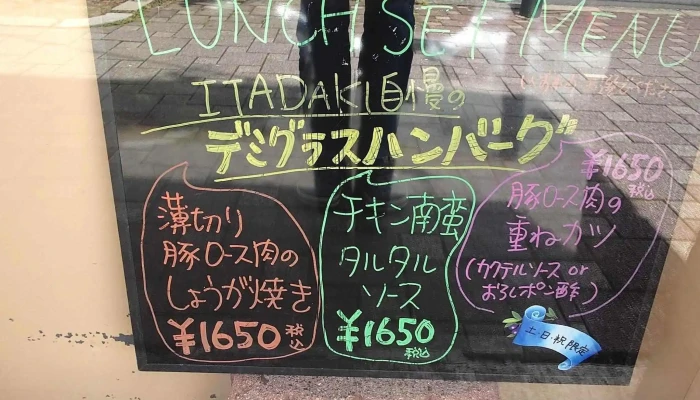 LUNCH SET MENU
ITADAKI自慢の
デミグラスハンバーグ
薄切り
豚ロース肉の
しょうが焼き
¥1650 税込
チキン南蛮
タルタル
ソース
¥1650 税込
¥1650 税込
豚ロース肉の
重ねカツ
(カクテルソース or
おろしポン酢)
土・日・祝限定